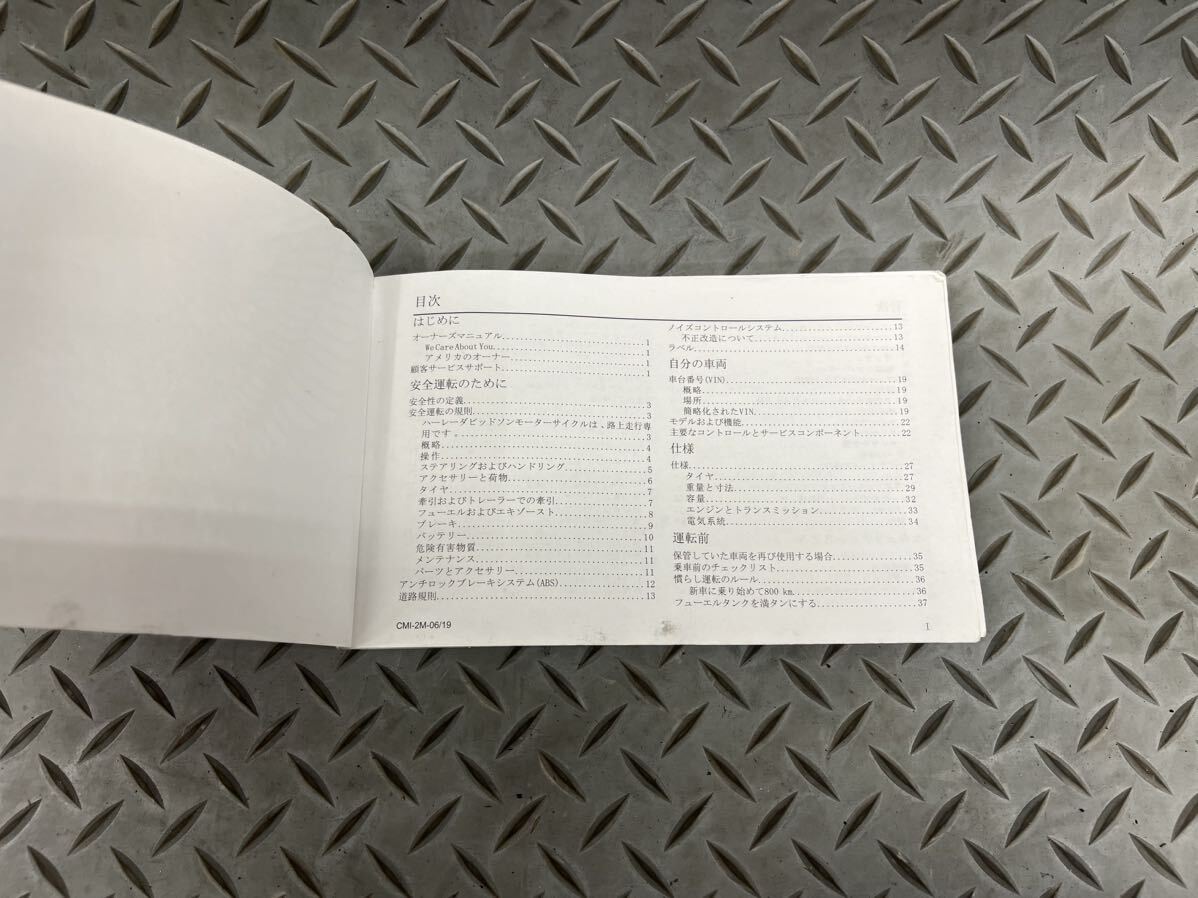 目次
はじめに
オーナーズマニュアル..........1
We Care About You..........1
アメリカのオーナー..........1
顧客サービスサポート..........1
安全運転のために
安全性の定義..........3
安全運転の規則..........3
ハーレーダビッドソンモーターサイクルは、路上走行専
用です。..........3
概略..........4
操作..........4
ステアリングおよびハンドリング..........5
アクセサリーと荷物..........6
タイヤ..........7
牽引およびトレーラーでの牽引..........7
フューエルおよびエキゾースト..........8
ブレーキ..........9
バッテリー..........10
危険有害物質..........11
メンテナンス..........11
パーツとアクセサリー..........11
アンチロックブレーキシステム(ABS)..........12
道路規則..........13
ノイズコントロールシステム..........13
不正改造について..........13
ラベル..........14
自分の車両
車台番号(VIN)..........19
概略..........19
場所..........19
簡略化されたVIN..........19
モデルおよび機能..........22
主要なコントロールとサービスコンポーネント..........22
仕様
仕様..........27
タイヤ..........27
重量と寸法..........29
容量..........32
エンジンとトランスミッション..........33
電気系統..........34
運転前
保管していた車両を再び使用する場合..........35
乗車前のチェックリスト..........35
慣らし運転のルール..........36
新車に乗り始めて800 km..........36
フューエルタンクを満タンにする..........37
CMI-2M-06/19
I